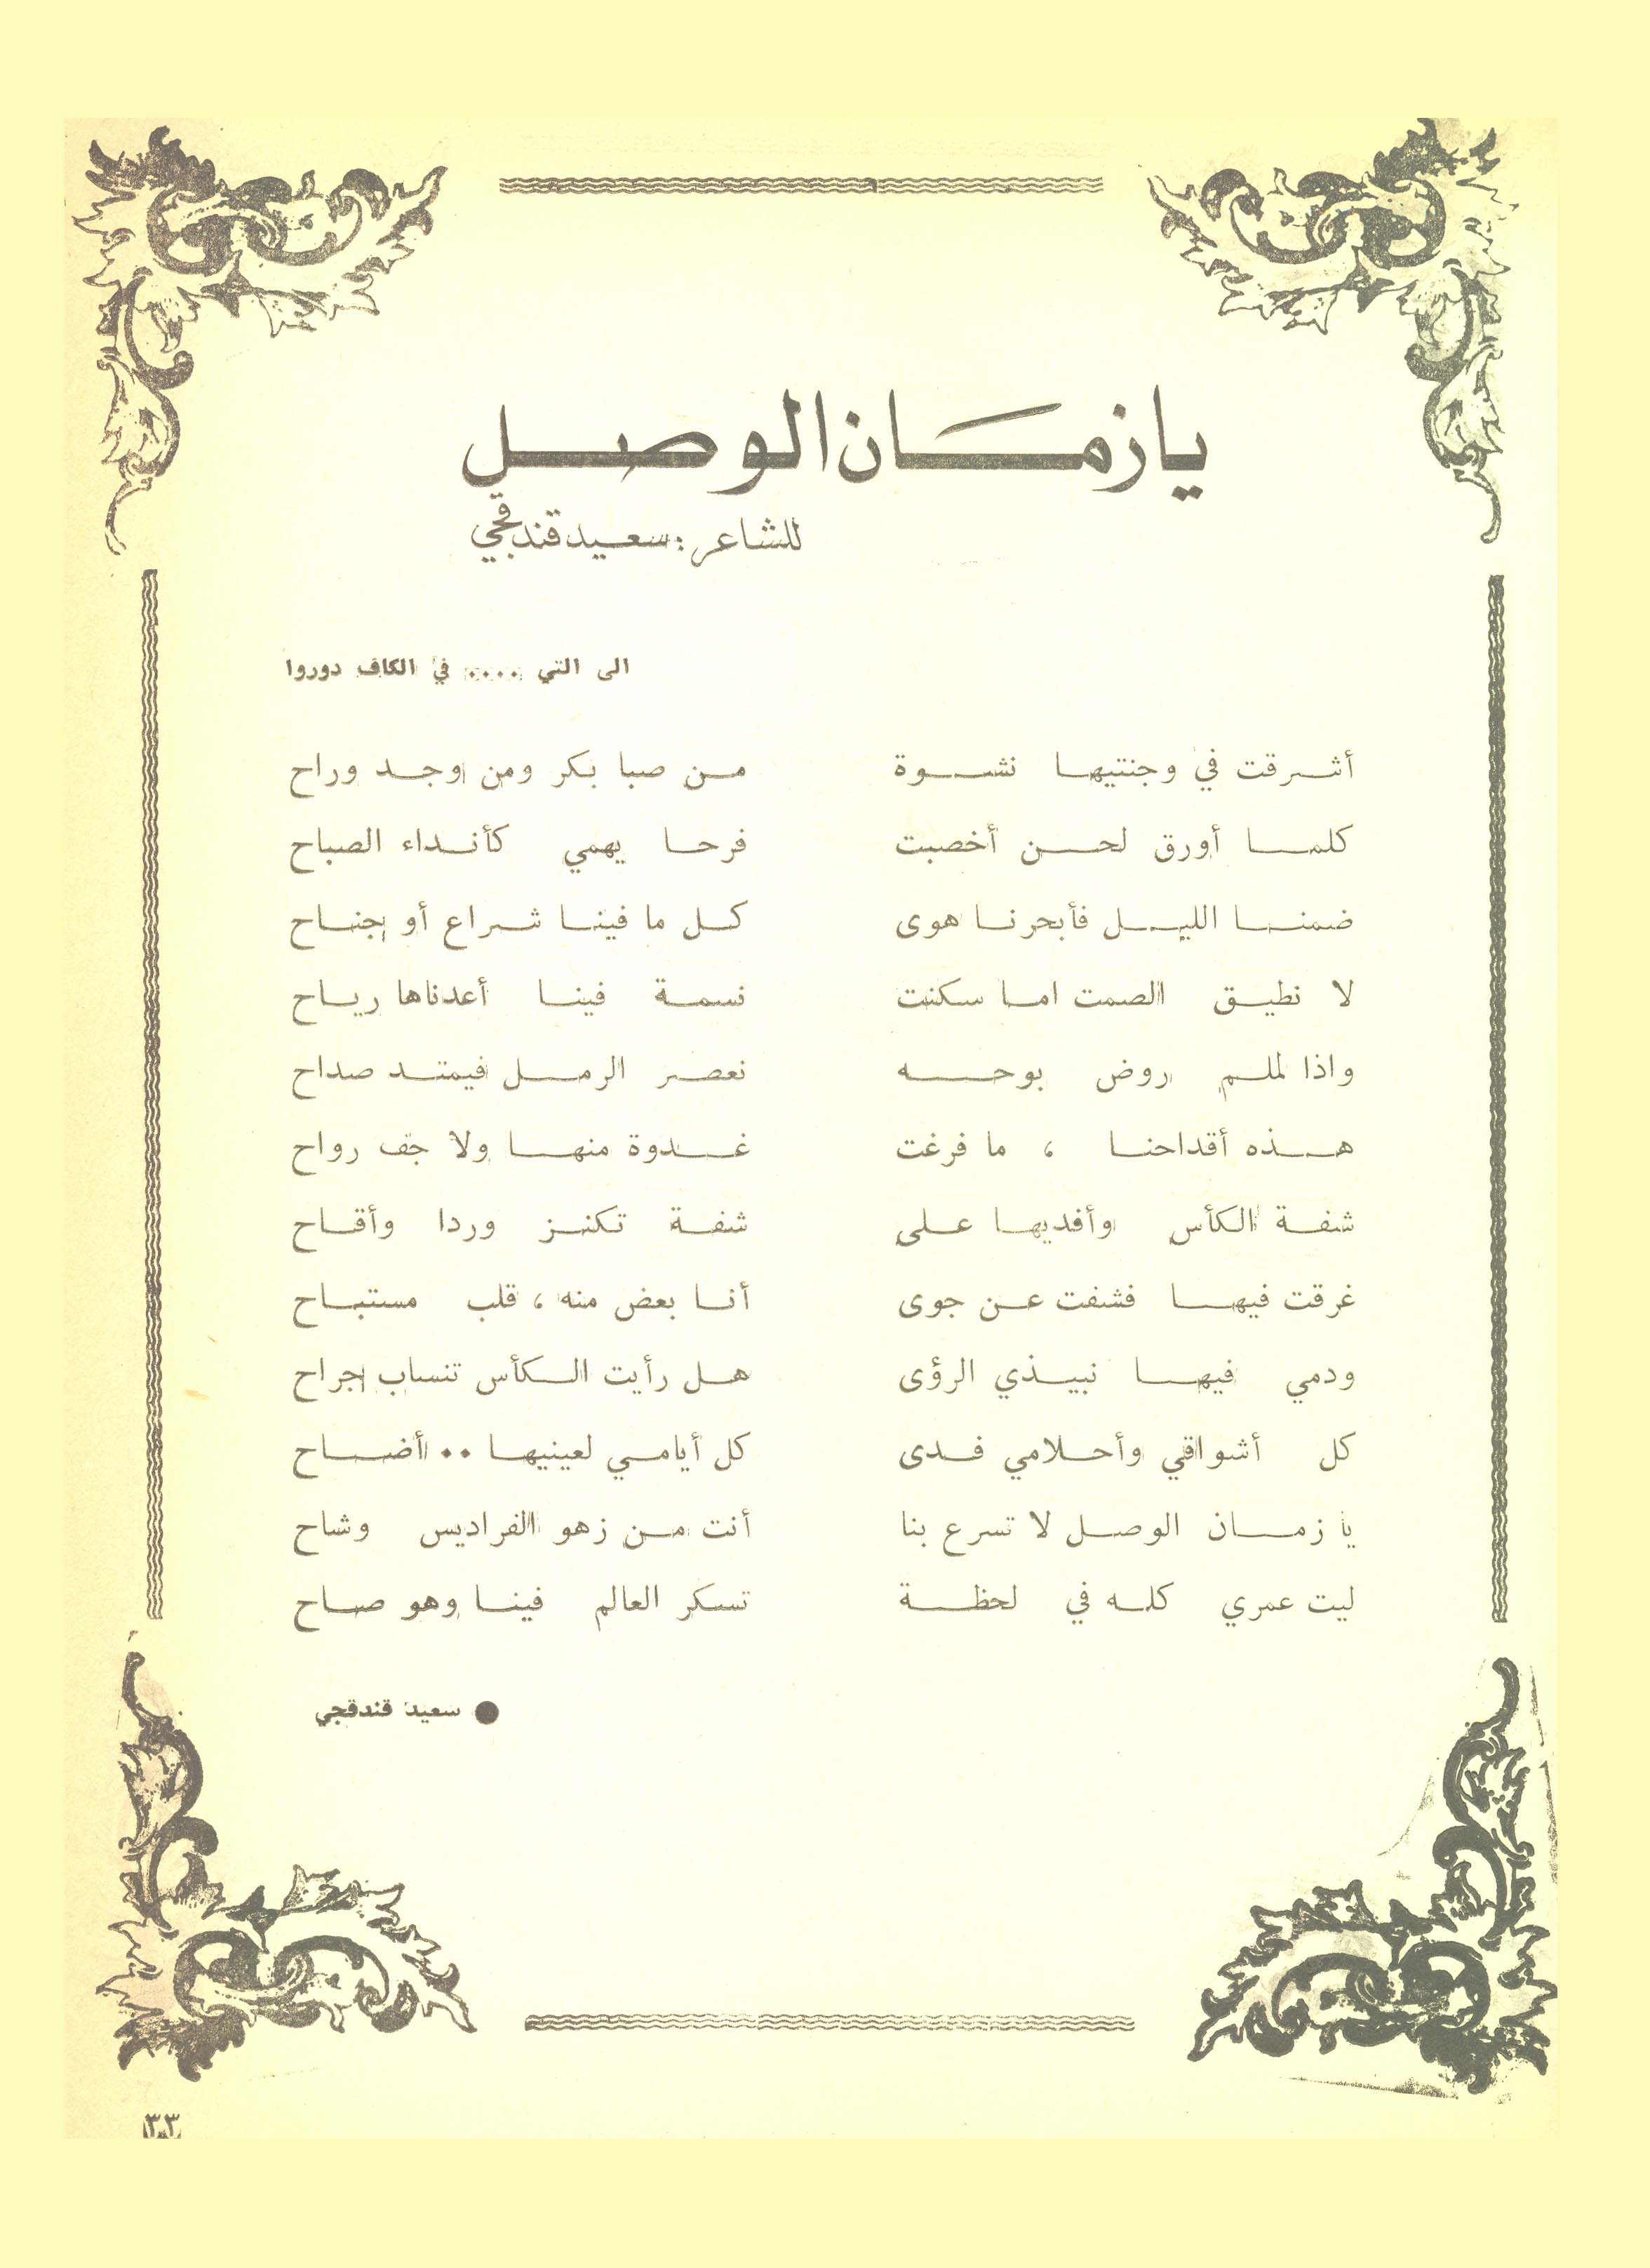 يا زمان الوصل
للشاعر : سعيد قندقجي
الى التي .... في الكاف دوروا
أشرقت في وجنتيها نشوة من صبا بكر ومن وجد وراح
كلما أورق لحن أخصبت فرحا يهمي كأنداء الصباح
ضمنا الليل فأبحرنا هوى كل ما فينا شراع أو جناح
لا نطيق الصمت اما سكنت نسمة فينا أعدناها رياح
واذا لملم روض بوحه نعصر الرمل فيمتد صداح
هذه أقداحنا ، ما فرغت غدوة منها ولا جف رواح
شفة الكأس وأفديها على شفة تكنز وردا وأقاح
غرقت فيها فشفت عن جوى أنا بعض منه ، قلب مستباح
ودمي فيها نبيذي الرؤى هل رأيت الكأس تنساب جراح
كل أشواقي وأحلامي فدى كل أيامي لعينيها .. أضاح
يا زمان الوصل لا تسرع بنا أنت من زهو الفراديس وشاح
ليت عمري كله في لحظة تسكر العالم فينا وهو صاح
● سعيد قندقجي
٣٣